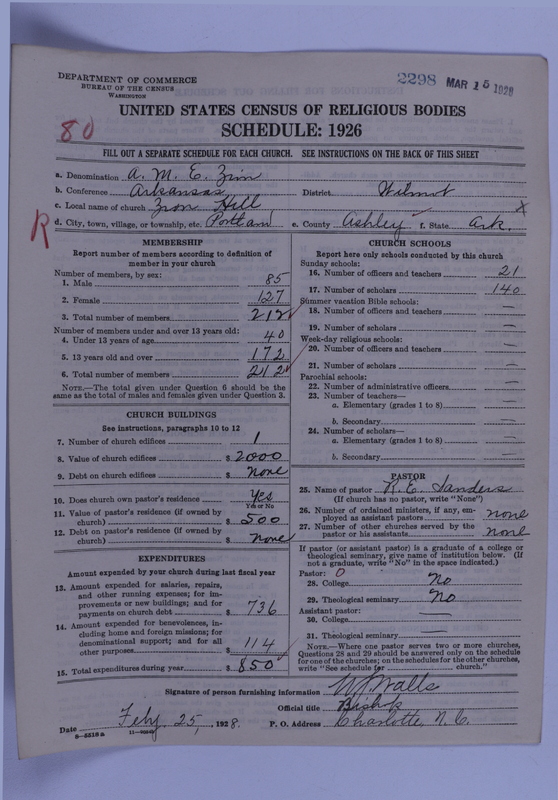 DEPARTMENT OF COMMERCE
BUREAU OF THE CENSUS
WASHINGTON
2298 MAR 15 1928
UNITED STATES CENSUS OF RELIGIOUS BODIES
SCHEDULE: 1926
80
FILL OUT A SEPARATE SCHEDULE FOR EACH CHURCH. SEE INSTRUCTIONS ON THE BACK OF THIS SHEET
a. Denomination A. M. E. Zion
b. Conference Arkansas District Wilmot
c. Local name of church Zion Hill x
R
d. City, town, village, or township, etc. Portland e. County Ashley f. State Ark.
MEMBERSHIP
Report number of members according to definition of
member in your church
Number of members, by sex:
1. Male 85
2. Female 127
3. Total number of members 212
Number of members under and over 13 years old:
4. Under 13 years of age 40
5. 13 years old and over 172
6. Total number of members 212
NOTE.—The total given under Question 6 should be
same as the total of males and females given under Question 3.
CHURCH BUILDINGS
See instructions, paragraphs 10 to 12
7. Number of church edifices 1
8. Value of church edifices $ 2000
9. Debt on church edifices $ none
10. Does church own pastor's residence Yes
Yes or No
11. Value of pastor's residence (if owned by
church) $ 500
12. Debt on pastor's residence (if owned by
church) $ none
EXPENDITURES
Amount expended by your church during last fiscal year
13. Amount expended for salaries, repairs,
and other running expenses; for im-
provements or new buildings; and for
payments on church debt $ 736
14. Amount expended for benevolences, in-
cluding home and foreign missions; for
denominational support; and for all
other purposes $ 114
15. Total expenditures during year $ 850
CHURCH SCHOOLS
Report here only schools conducted by this church
Sunday schools:
16. Number of officers and teachers 21
17. Number of scholars 140
Summer vacation Bible schools:
18. Number of officers and teachers —
19. Number of scholars —
Week-day religious schools:
20. Number of officers and teachers —
21. Number of scholars —
Parochial schools:
22. Number of administrative officers —
23. Number of teachers—
a. Elementary (grades 1 to 8) —
b. Secondary —
24. Number of scholars—
a. Elementary (grades 1 to 8) —
b. Secondary —
PASTOR
25. Name of pastor R. E. Sanders
(If church has no pastor, write "None")
26. Number of ordained ministers, if any, em-
ployed as assistant pastors none
27. Number of other churches served by the
pastor or his assistants none
If pastor (or assistant pastor) is a graduate of a college or
theological seminary, give name of institution below. (If
not a graduate, write "No" in the space indicated.)
Pastor: 0
28. College No
29. Theological seminary No
Assistant pastor:
30. College —
31. Theological seminary —
NOTE.—Where one pastor serves two or more churches,
Questions 28 and 29 should be answered only on the schedule
for one of the churches; on the schedules for the other churches,
write "See schedule for church."
Signature of person furnishing information W. J. Walls
Official title Bishop
Date Feby. 25, 1928. P. O. Address Charlotte, N. C.
8—5518a